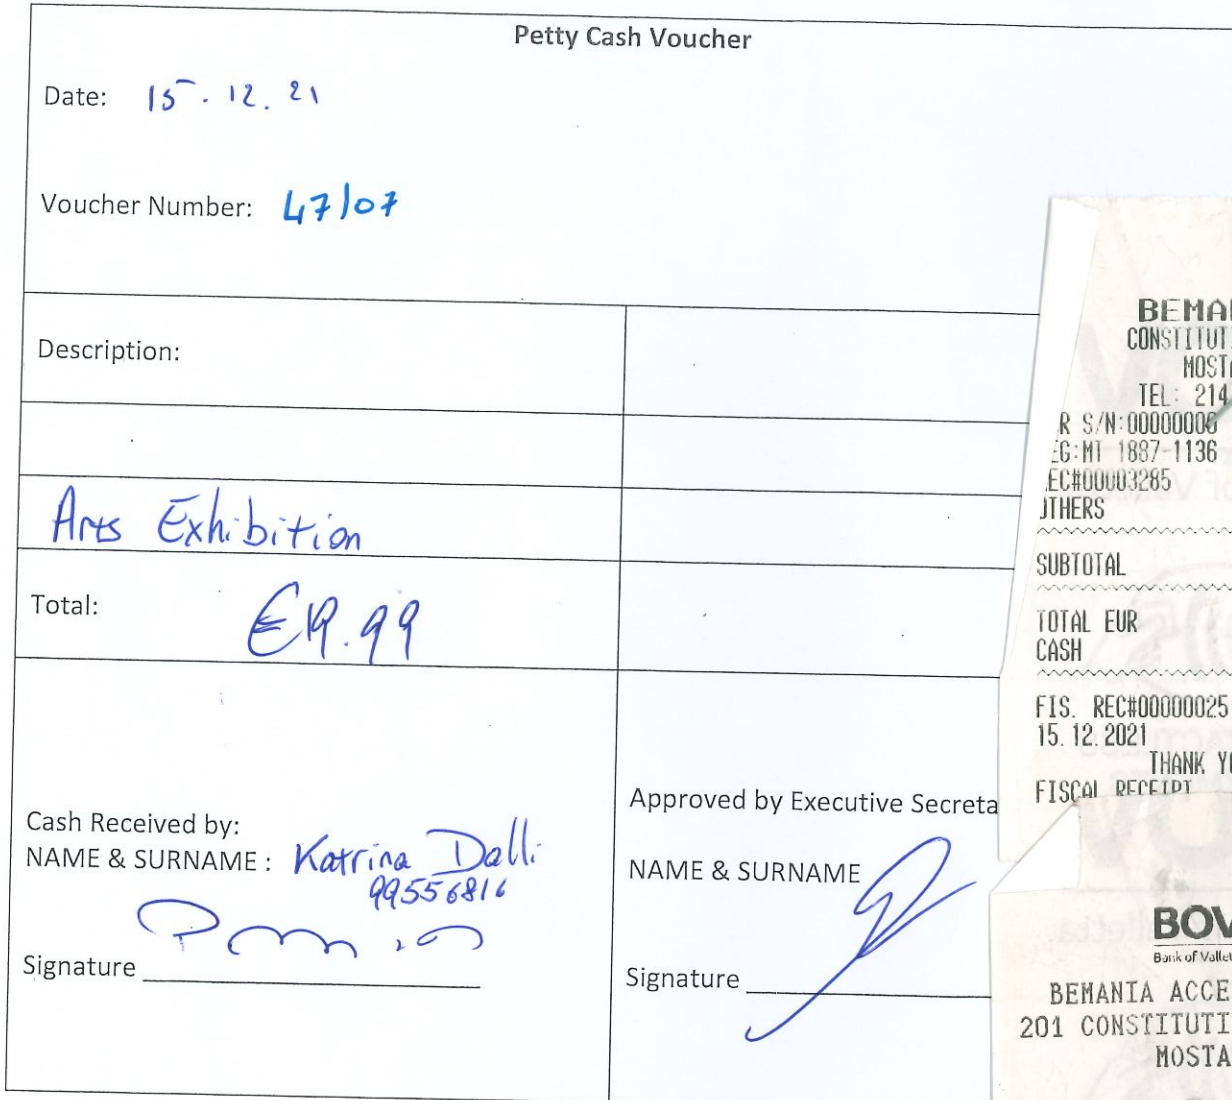 Petty Cash Voucher
Date: 15.12.21
Voucher Number: 47/07
Description:
Arts Exhibition
Total: €19.99
Cash Received by:
NAME & SURNAME : Katrina Dalli
99556816
Signature
Approved by Executive Secreta
NAME & SURNAME
Signature
BEMA
CONSTITUT
MOSTA
TEL: 214
R S/N:00000000
EG:MT 1887-1136
EC#00003285
OTHERS
SUBTOTAL
TOTAL EUR
CASH
FIS. REC#00000025
15.12.2021
THANK YO
FISCAL RECEIPT
BOV
Bank of Vallet
BEMANIA ACCE
201 CONSTITUTI
MOSTA